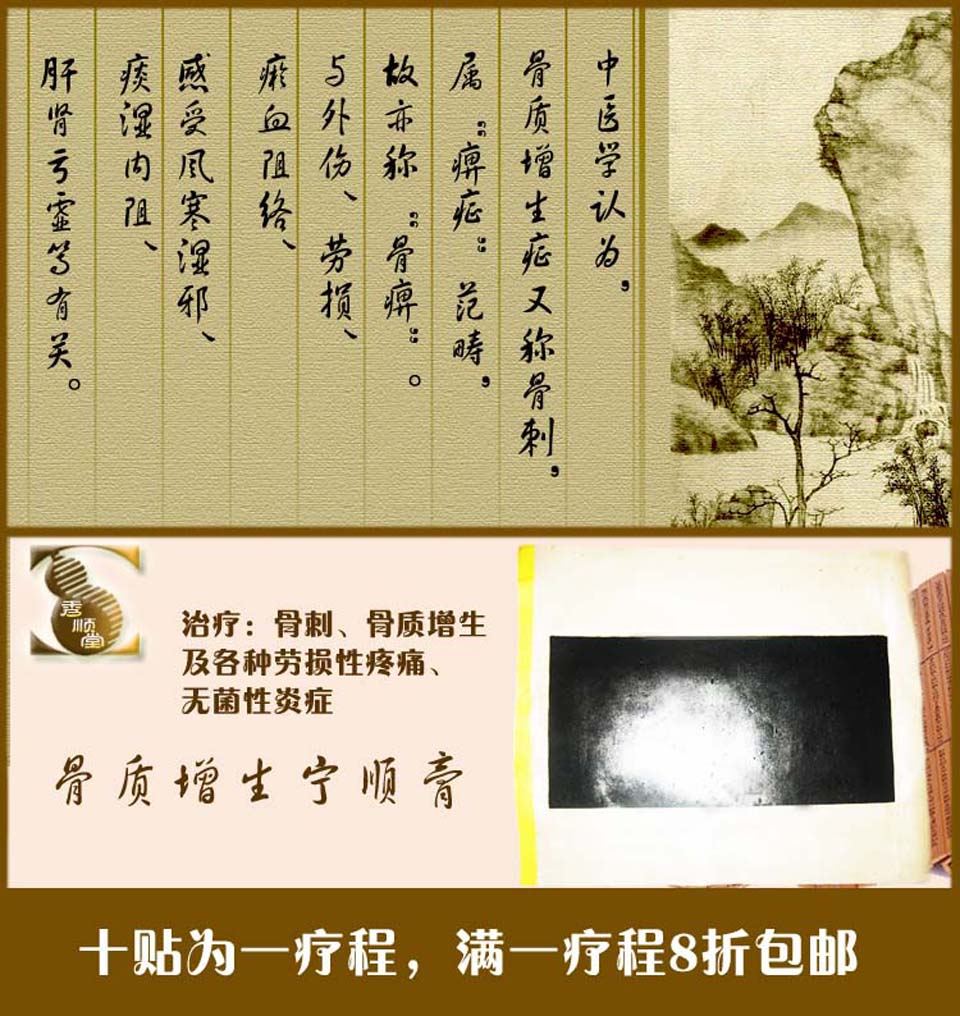 中医学认为，
骨质增生症又称骨刺，
属“痹症”范畴，
故亦称“骨痹”。
与外伤、劳损、
瘀血阻络、
感受风寒湿邪、
痰湿内阻、
肝肾亏虚等有关。
秀顺堂
治疗：骨刺、骨质增生
及各种劳损性疼痛、
无菌性炎症
骨质增生宁顺膏
十贴为一疗程，满一疗程8折包邮